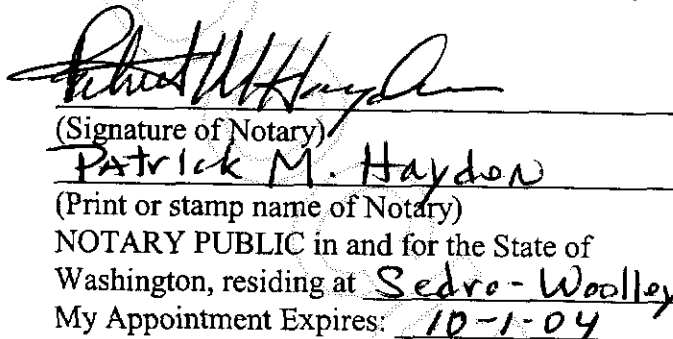 Patrick M Hayden
(Signature of Notary)
Patrick M. Hayden
(Print or stamp name of Notary)
NOTARY PUBLIC in and for the State of
Washington, residing at Sedro-Woolley
My Appointment Expires: 10-1-04